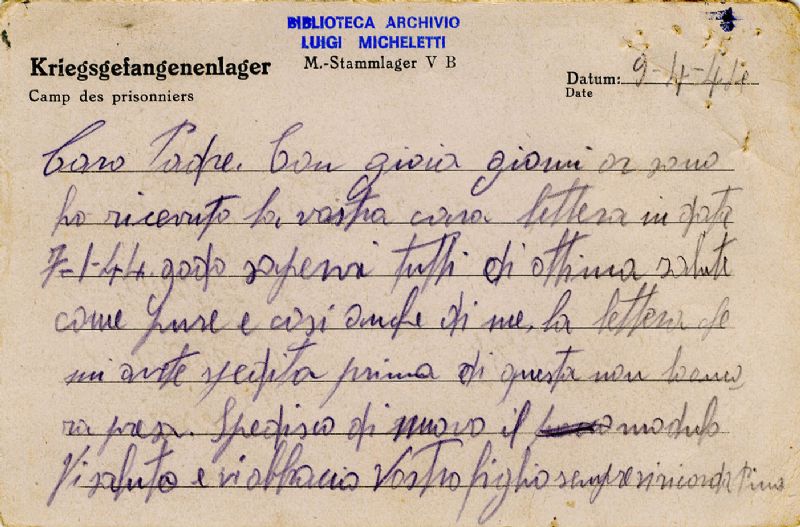 BIBLIOTECA ARCHIVIO
LUIGI MICHELETTI
Kriegsgefangenenlager
M.-Stammlager V B
Camp des prisonniers
Datum: 9-4-44
Date
Caro Padre. Con gioia giorni or sono
ho ricevuto la vostra cara lettera in data
7-1-44. godo sapervi tutti di ottima salute
come pure e cosi anche di me, la lettera che
mi avete spedita prima di questa non lo anco
ra presa. Spedisco di nuovo il modulo
Vi saluto e vi abbraccio Vostro figlio sempre vi ricorda